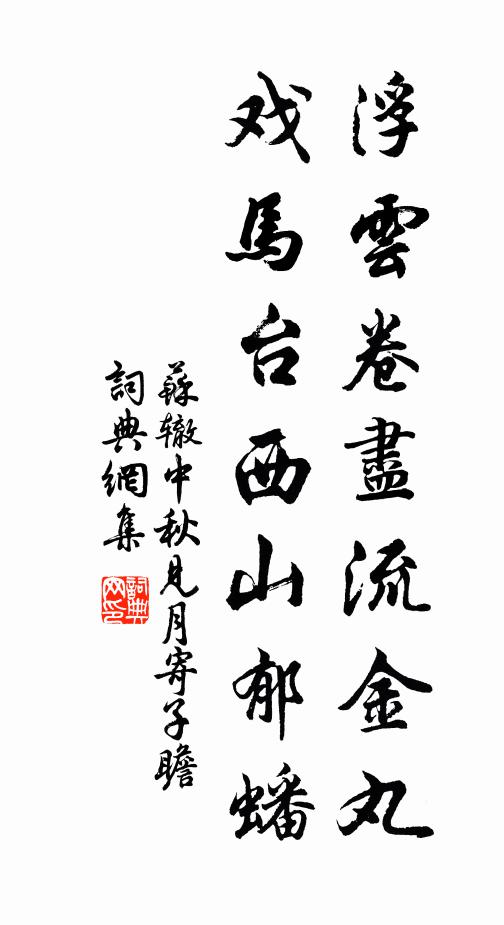 浮雲卷盡流金丸
戏馬台西山郁蟠
蘇辙中秋見月寄子瞻
詞典網集
詞典网印